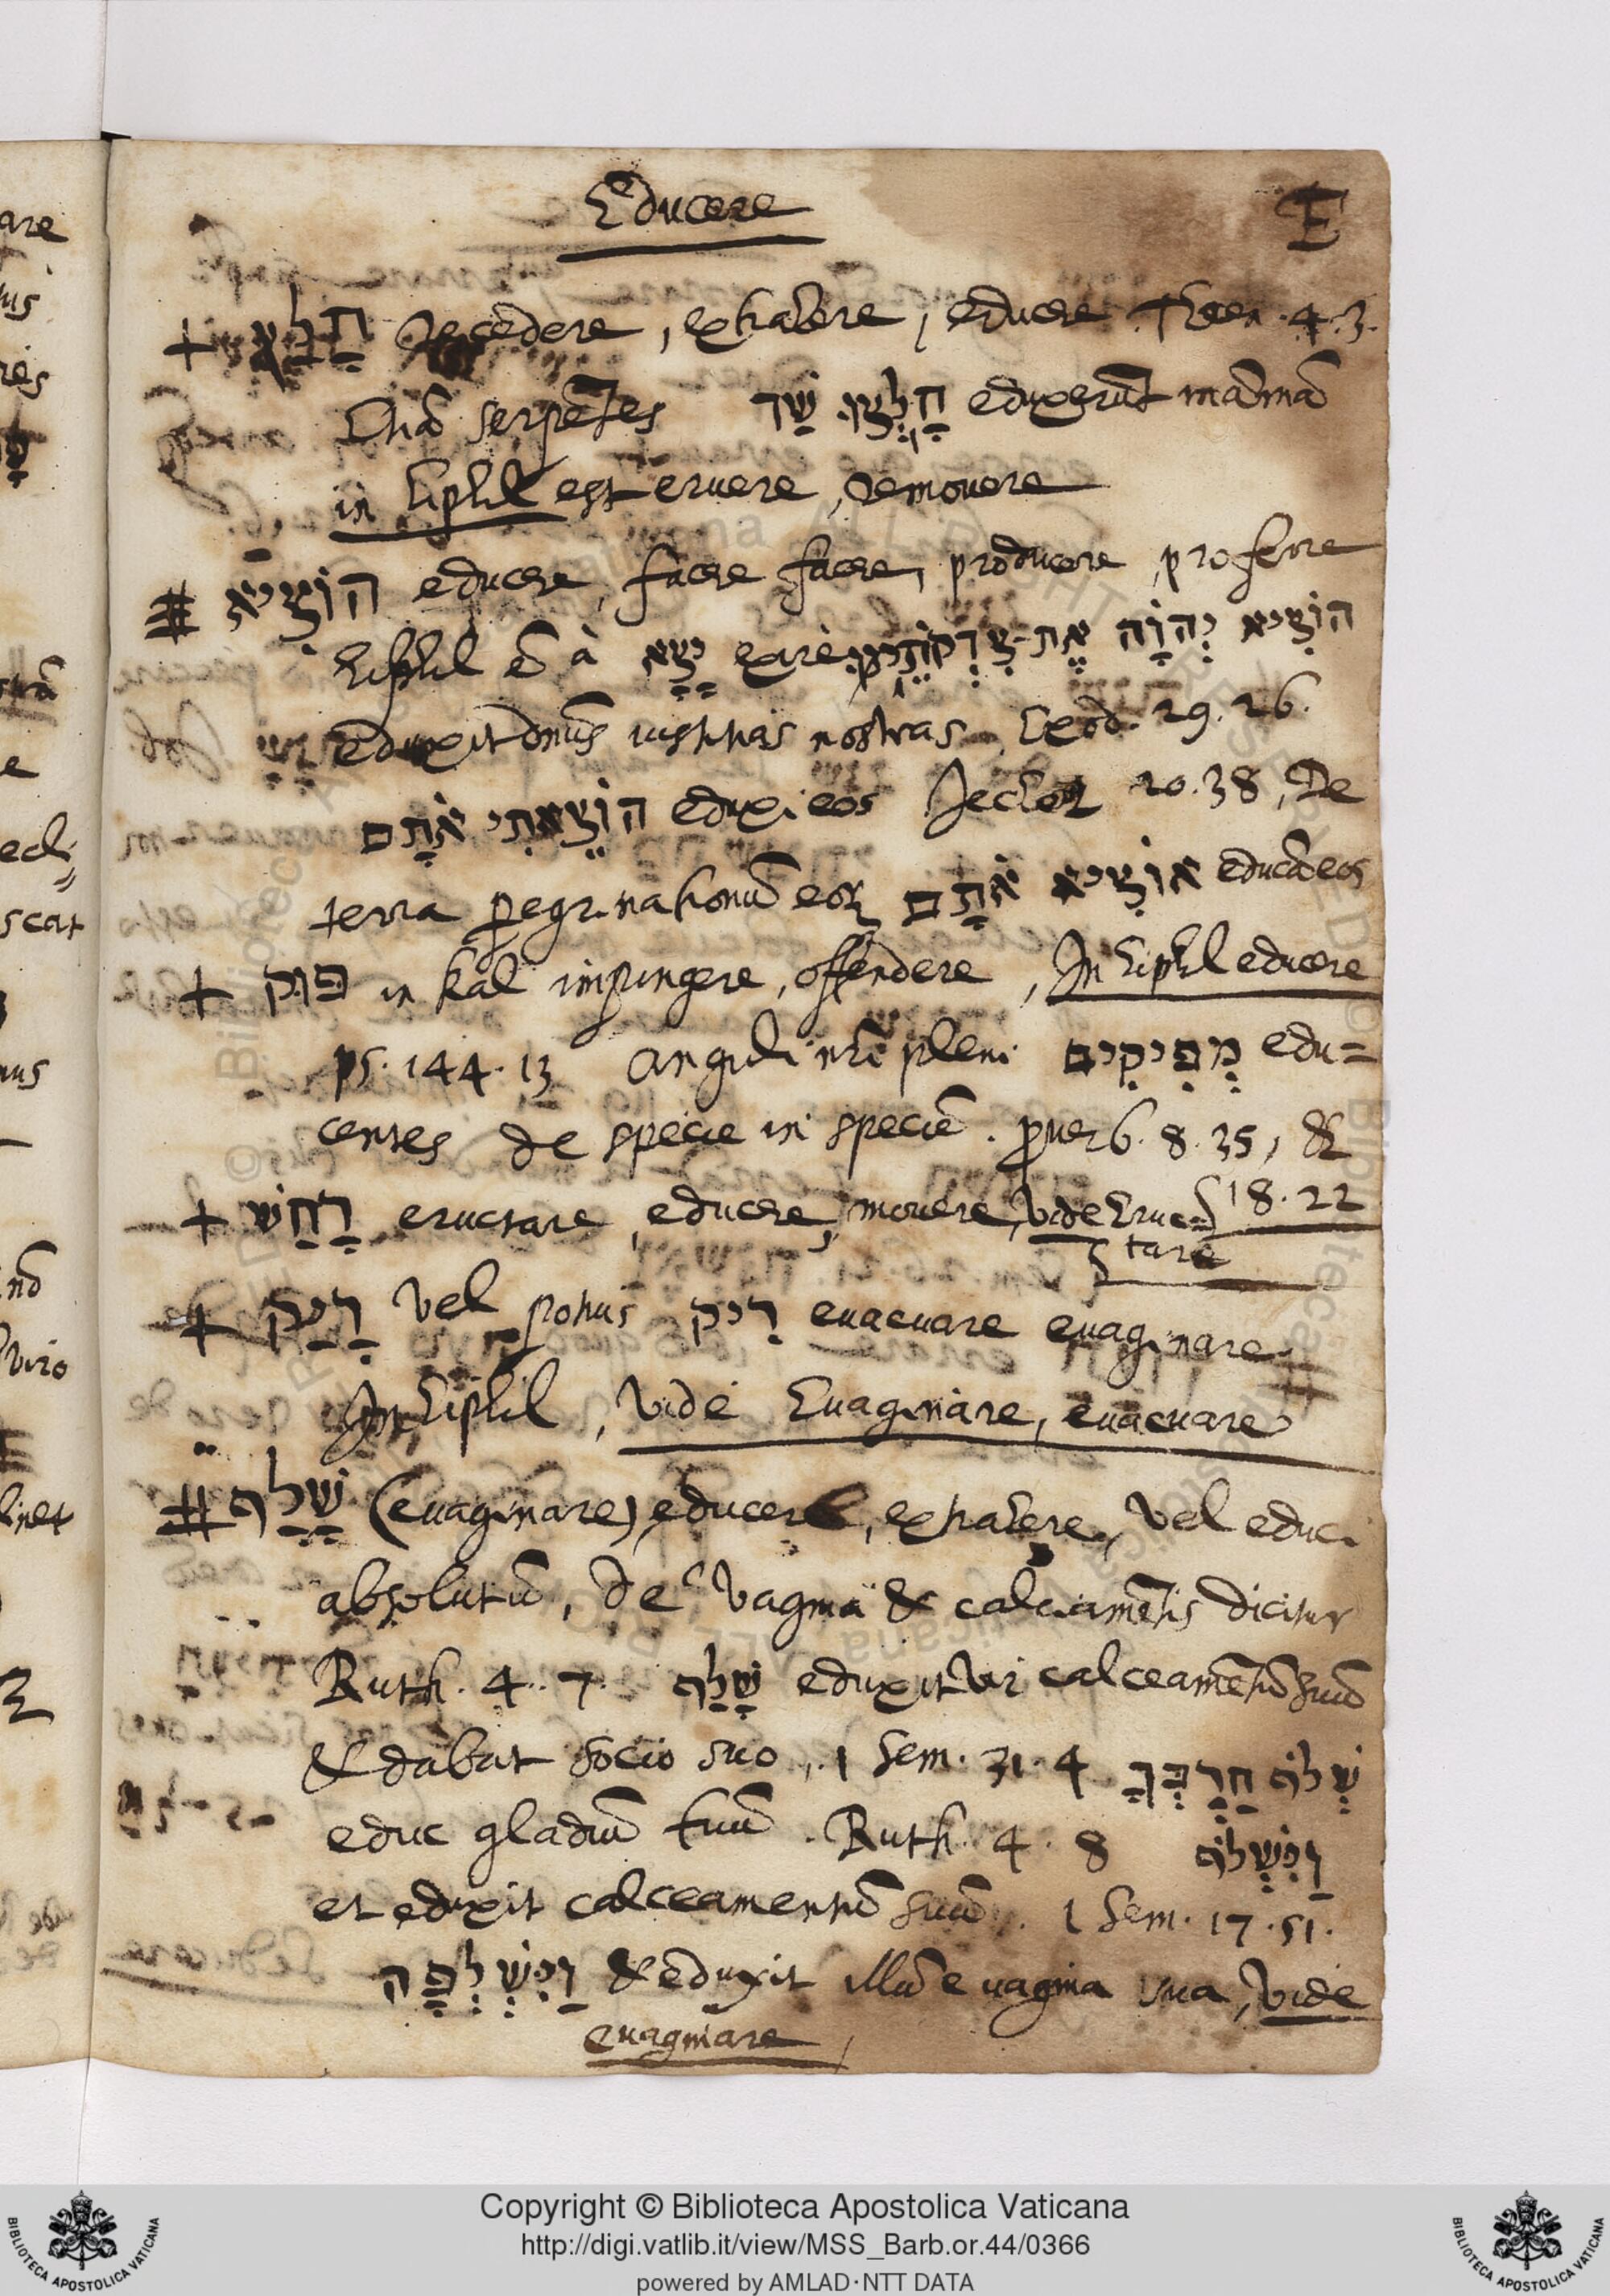 Educere
E
+ חָלַץ recedere, extrahere, educere Thren. 4. 3.
Etiã serpẽtes חָלְצוּ שַׁד eduxerũt mãmã
in hiphil est eruere, remouere
# הוֹצִיא educere, facere facere, producere, proferre
hiphil ẽ à יָצָא exire הוֹצִיא יְהוָֹה אֶת־צִדְקוֹתֵינוּ
eduxit dnũs iustitias nostras, Exod. 29. 26.
הוֹצֵאתִי אֹתָם eduxi eos Jechez 20. 38, De
terra peregrinationũ eoꝝ אוֹצִיא אֹתָם educã eos
+ פּוּק in kal impingere, offendere, In hiphil educere
ps. 144. 13 anguli nrĩ pleni מְפִיקִים edu=
centes de specie in speciẽ. prouerb. 8. 35, &
18. 22
+ רָחַשׁ eructare, educere, mouere, vide Eruc=
tare
+ רָיַק vel potius רִיק euacuare euaginare
In hiphil, vide Euaginare, euacuare
# שָׁלַף (euaginare) educere, extrahere, vel educi
absolutũ, de vagina & calciamẽtis dicitur
Ruth. 4. 7. שָׁלַף eduxit vir calceamẽtũ suũ
& dabat socio suo, 1 Sem. 31. 4 שְׁלֹף חַרְבְּךָ
educ gladiũ tuũ. Ruth. 4. 8 וַיִּשְׁלֹף
et eduxit calceamentũ suũ. 1 Sem. 17. 51.
וַיִּשְׁלְפָהּ & eduxit illũ e uagina sua, vide
euaginare
Copyright © Biblioteca Apostolica Vaticana
http://digi.vatlib.it/view/MSS_Barb.or.44/0366
powered by AMLAD·NTT DATA
BIBLIOTECA APOSTOLICA VATICANA
BIBLIOTECA APOSTOLICA VATICANA